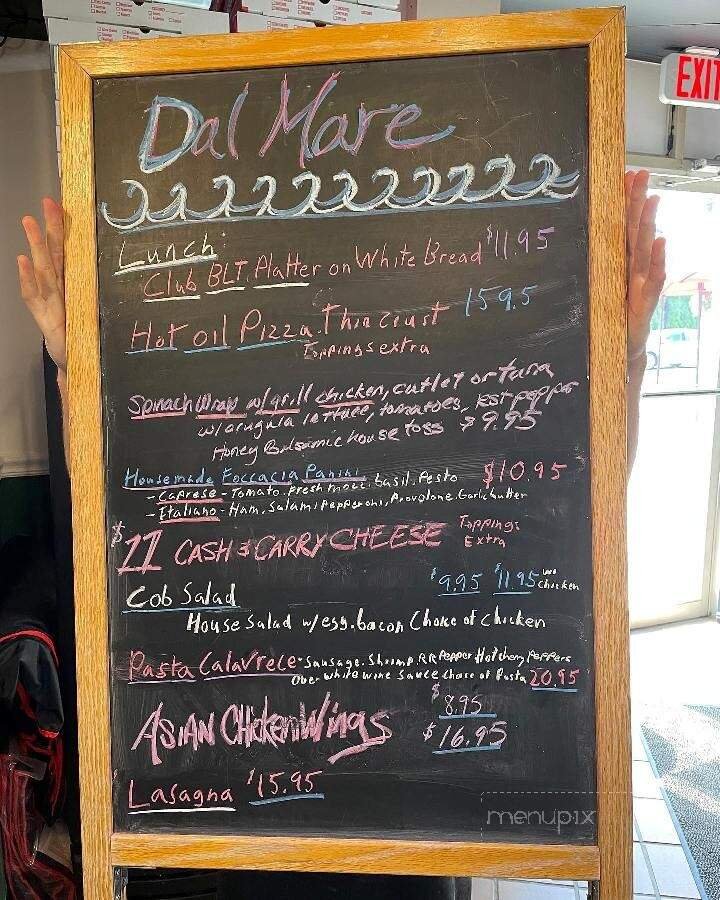 EXIT
Dal Mare
Lunch:
Club BLT Platter on White Bread $11.95
Hot oil Pizza. Thin crust 15.95
Toppings extra
Spinach Wrap w/grill chicken, cutlet or tuna
w/arugula lettuce, tomatoes, rst pepper
Honey Balsamic house toss $9.95
Housemade Foccacia Panini $10.95
- Caprese - Tomato. Fresh mozz. basil. Pesto
- Italiano - Ham, Salami Pepperoni, Provolone. Garlic butter
$11 CASH & CARRY CHEESE Toppings Extra
Cob Salad $9.95 $11.95 w/ Chicken
House Salad w/egg. bacon Choice of Chicken
Pasta Calavrece - Sausage. Shrimp. RR Pepper Hot cherry Peppers
Over white wine Sauce Choice of Pasta 20.95
$8.95
ASIAN Chicken Wings $16.95
Lasagna $15.95
menupix